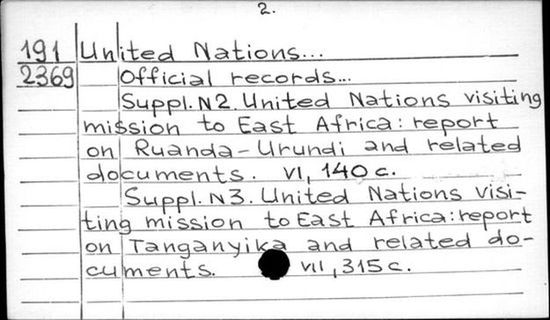 2.
191 United Nations...
2369 Official records...
Suppl. N2. United Nations visiting
mission to East Africa: report
on Ruanda-Urundi and related
documents. VI, 140 c.
Suppl. N3. United Nations visi-
ting mission to East Africa: report
on Tanganyika and related do-
cuments. VII, 315 c.